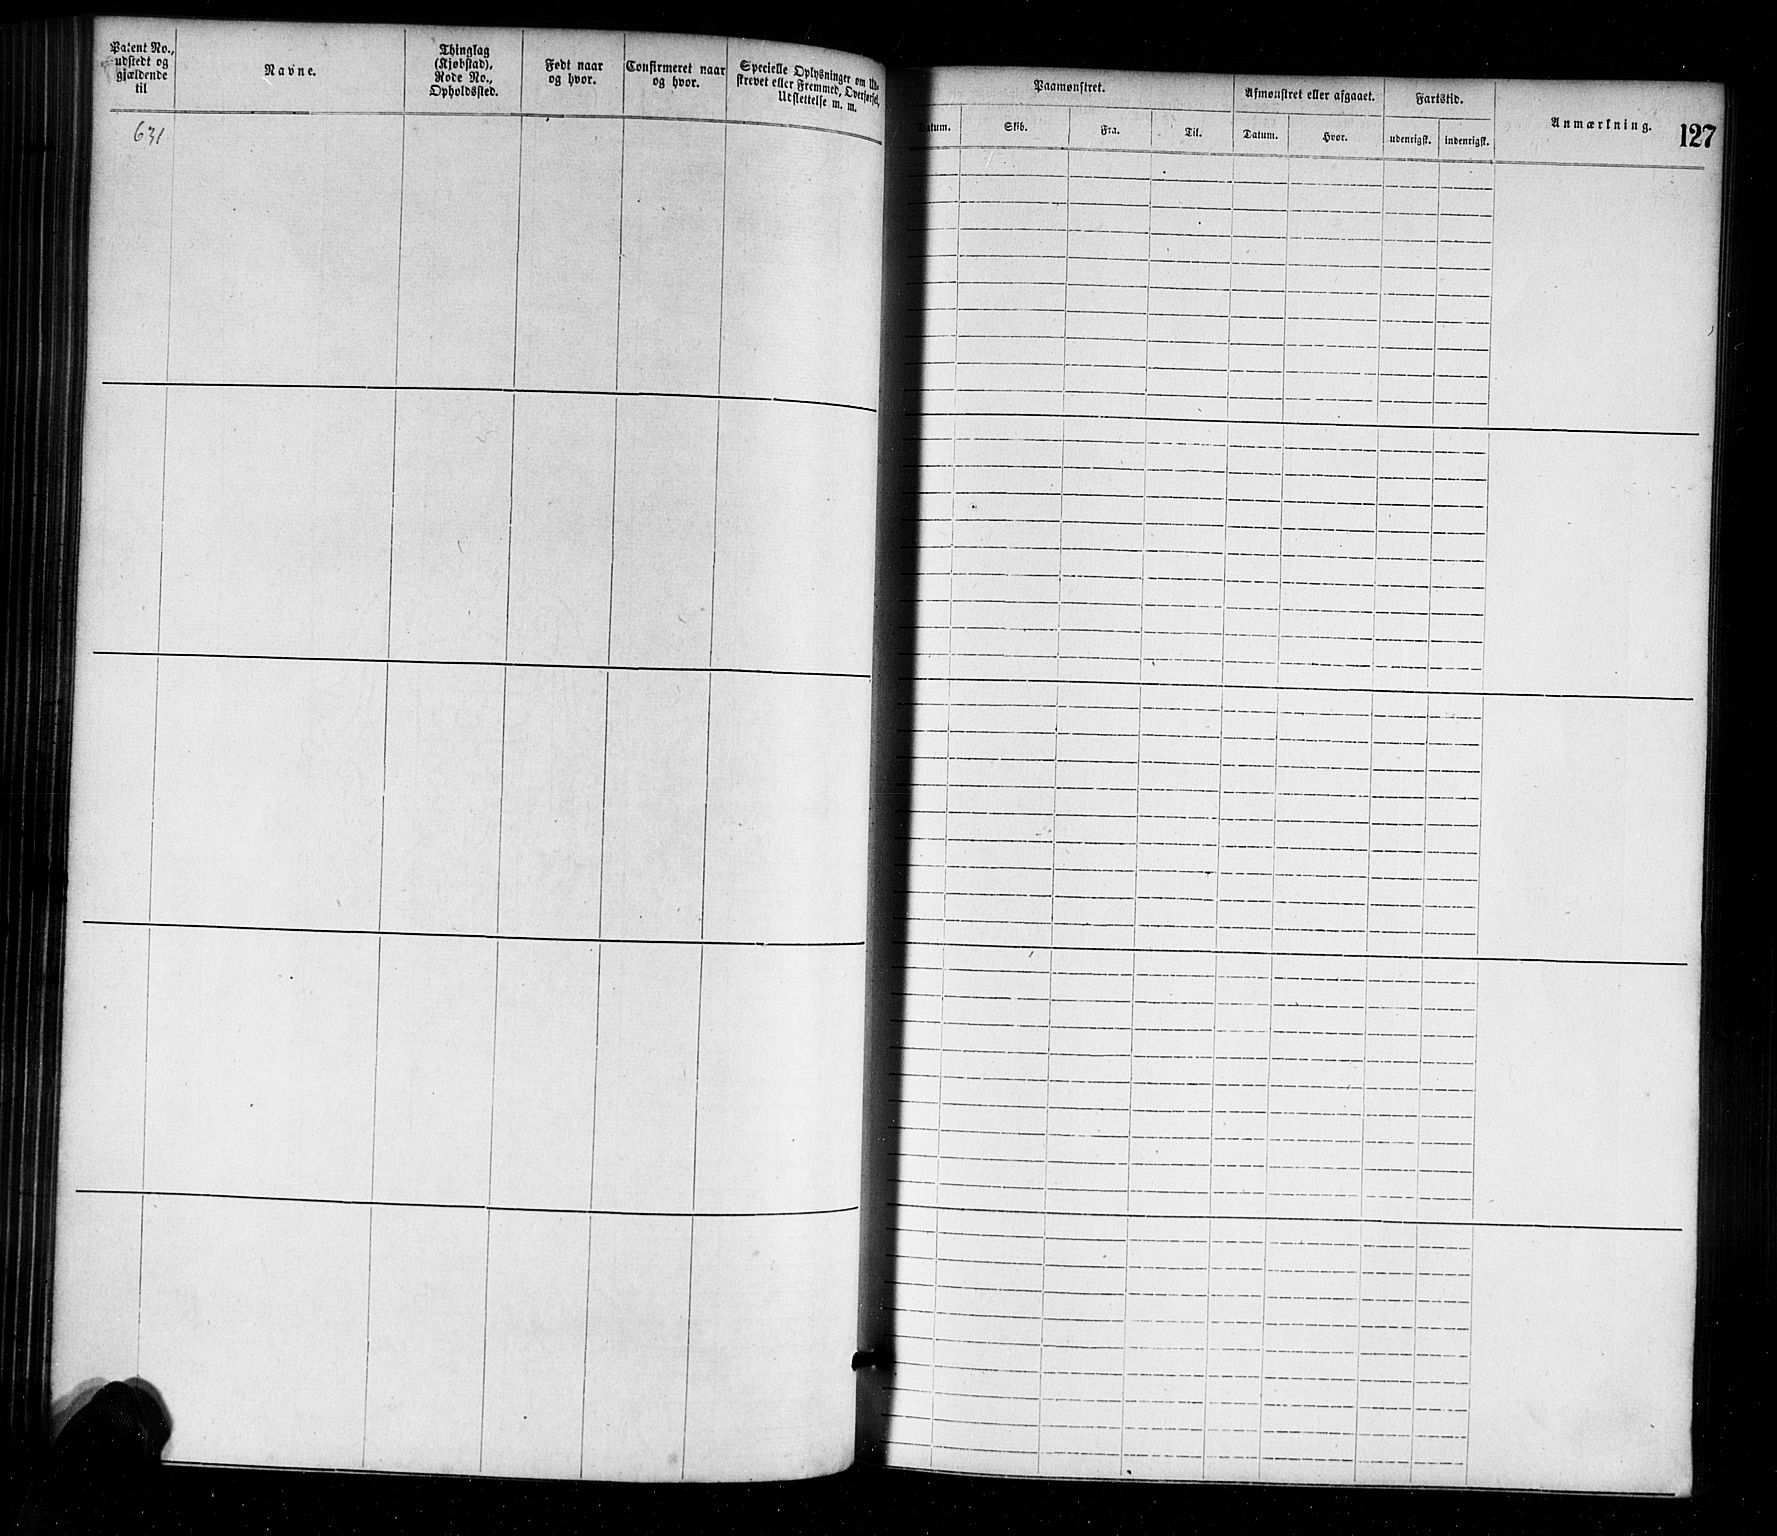 Patent No.,
udstedt og
gjældende
til
Navne.
Thinglag
(Kjøbstad),
Rode No.,
Opholdssted.
Født naar
og hvor.
Confirmeret naar
og hvor.
Specielle Oplysninger om Ud-
skrevet eller Fremmed, Overførsel,
Udslettelse m. m.
631
Paamønstret.
Datum.
Skib.
Fra.
Til.
Afmønstret eller afgaaet.
Datum.
Hvor.
Fartstid.
udenrigsk.
indenrigsk.
Anmærkning.
127